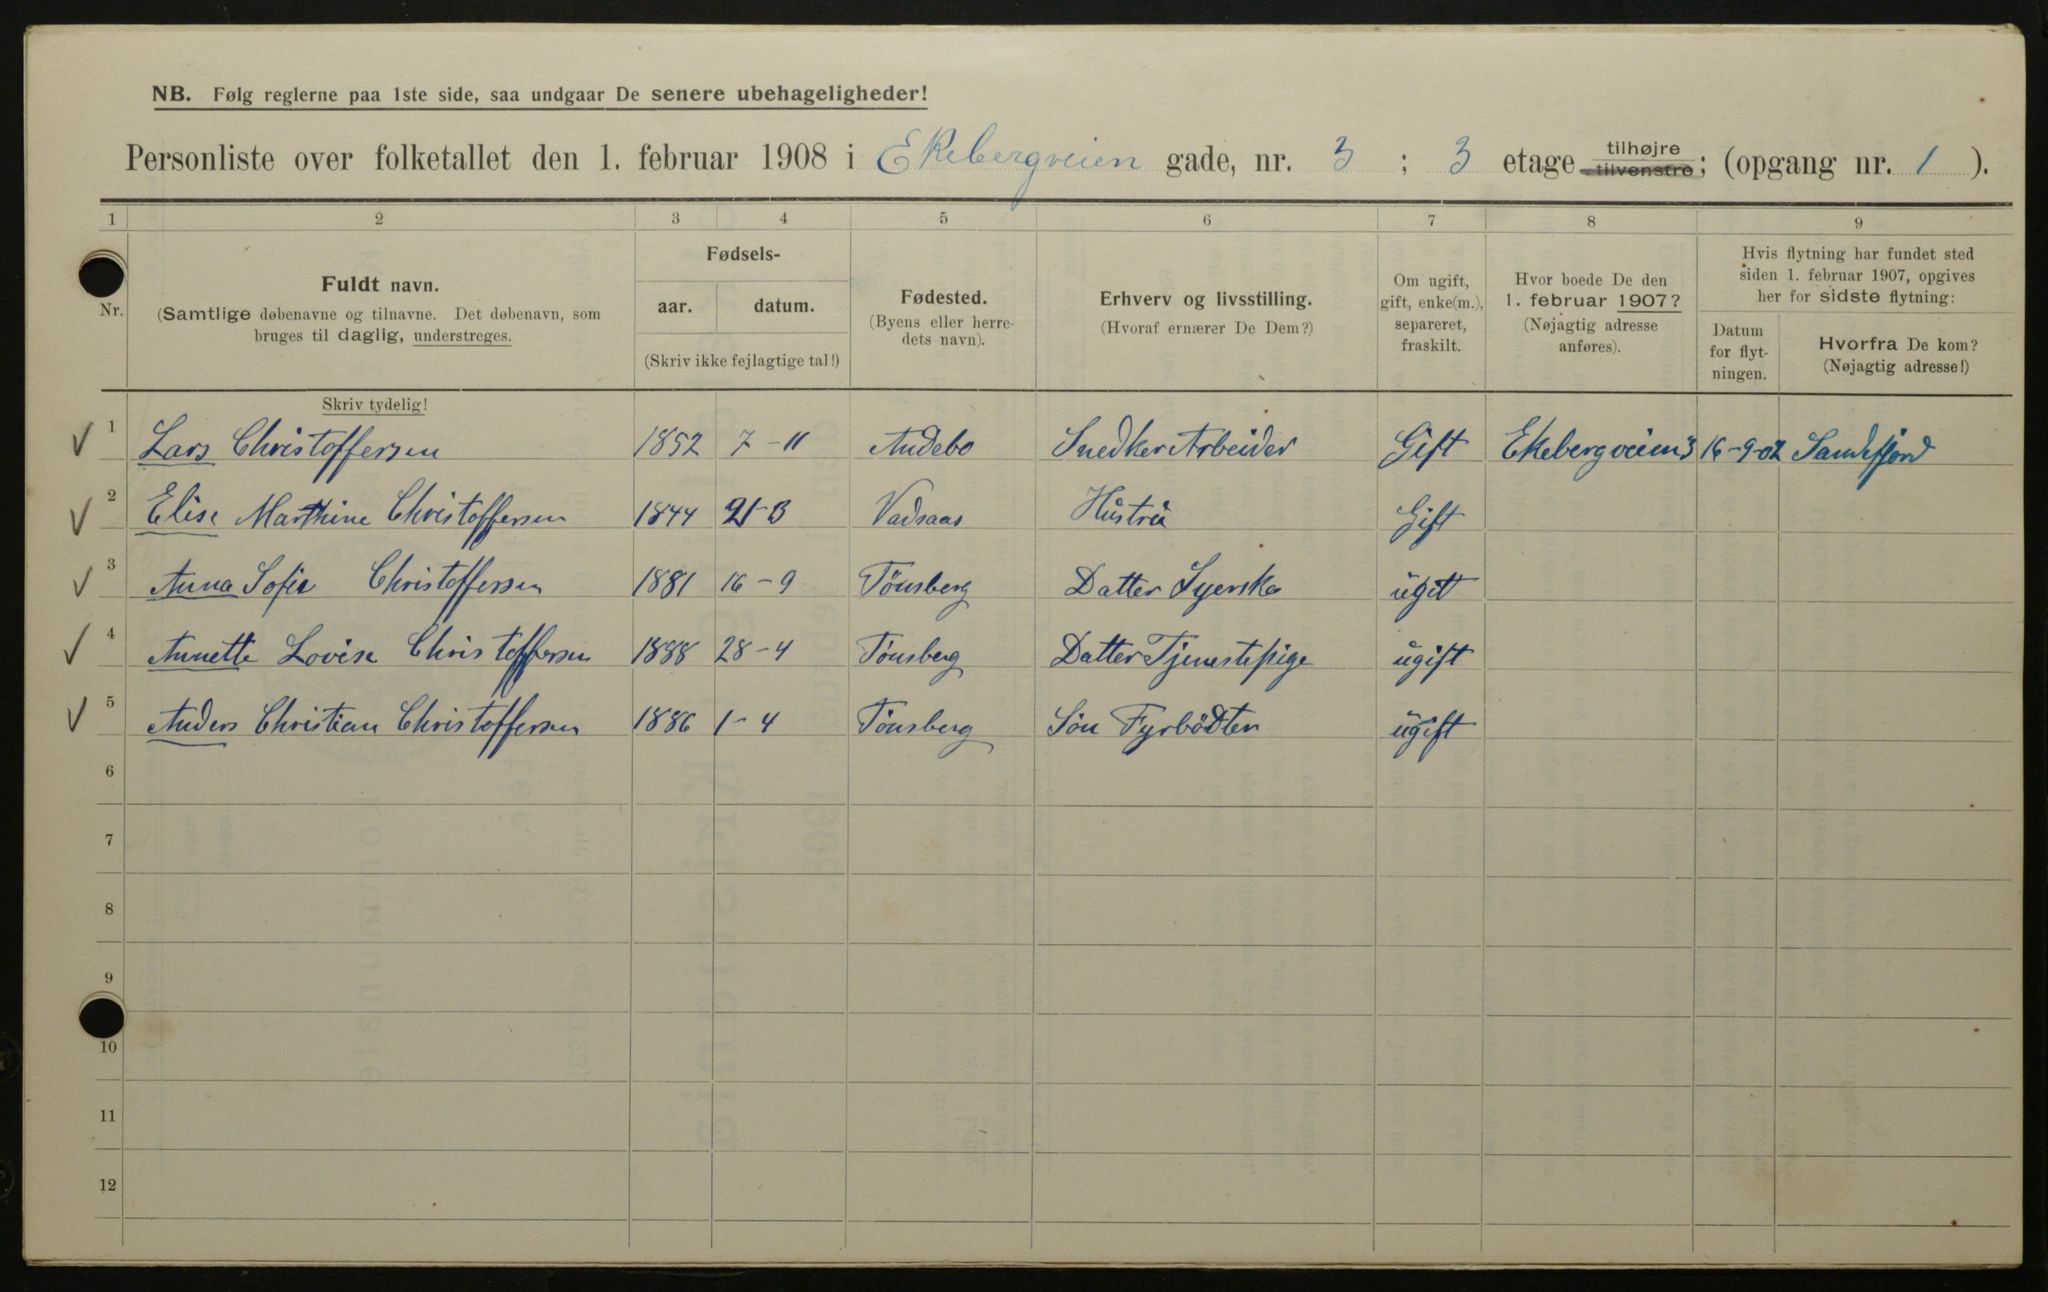 NB. Følg reglerne paa 1ste side, saa undgaar De senere ubehageligheder!
Personliste over folketallet den 1. februar 1908 i Ekebergveien gade, nr. 3 ; 3 etage tilhøjre tilvenstre; (opgang nr. 1 ).
1 2 3 4 5 6 7 8 9
Nr.
Fuldt navn.
(Samtlige døbenavne og tilnavne. Det døbenavn, som
bruges til daglig, understreges.
Fødsels-
aar. datum.
(Skriv ikke fejlagtige tal!)
Fødested.
(Byens eller herre-
dets navn).
Erhverv og livsstilling.
(Hvoraf ernærer De Dem?)
Om ugift,
gift, enke(m.),
separeret,
fraskilt.
Hvor boede De den
1. februar 1907?
(Nøjagtig adresse
anføres).
Hvis flytning har fundet sted
siden 1. februar 1907, opgives
her for sidste flytning:
Datum
for flyt-
ningen.
Hvorfra De kom?
(Nøjagtig adresse!)
Skriv tydelig!
1 Lars Christoffersen 1852 7-11 Andebo Snedker Arbeider Gift Ekebergveien 3 16-9-02 Sandefjord
2 Elise Marthine Christoffersen 1844 Vadsaas Hŭstrŭ Gift
3 Anna Sofie Christoffersen 1881 16-9 Tönsberg Datter Syerske ŭgit
4 Annette Lovise Christoffersen 1888 28-4 Tönsberg Datter Tjenestepige ŭgift
5 Anders Christian Christoffersen 1886 1-4 Tönsberg Sön Fyrbödter ŭgift
6
7
8
9
10
11
12